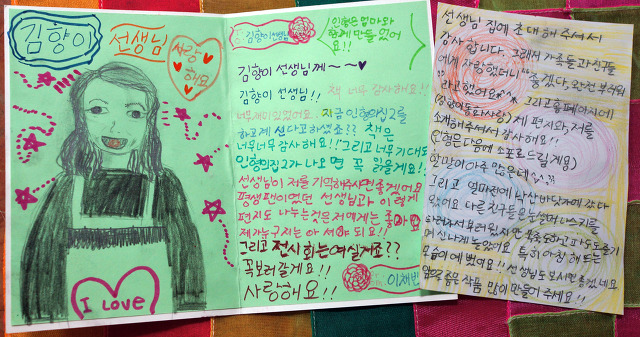 김향이
선생님
사랑
해요
I Love
김향이선생님
인형은 엄마와
함께 만들었어
요!!
김향이 선생님께~~♥
김향이 선생님!! 책 너무 감사해요!!
너무재미있었어요. 지금 인형의집2를
하고계신다고하셨죠?? 책은
너무너무감사해요!!그리고너무기대도
인형의집2가 나오면 꼭 읽을게요!!
선생님이 저를 기억해주시면좋겠어요
평생팬이였던 선생님과 이렇게
편지도 나누는것은저에게는 좋아요
제가누구지는 아셔야 되요!!
그리고 전시회는여실게죠??
꼭보러갈게요!!
사랑해요!!
이채빈
선생님 집에 초대해 주셔서
감사합니다. 그래서 가족들과친구들
에게 자랑했더니 "좋겠다, 완전 부러워
"라고했어요^^ 그리고홈페이지에
제 편지와, 저를
소개해주셔서감사해요!!
(인형은다음에 소포로드릴게용)
할말이아주 많은데
그리고 얼마전에 낙산바닷가에 갔다
왔어요 다른친구들은
신나게놀았어요 특히 아침 해뜨는
모습이 예뻤어요!! 선생님도보시면 좋겠네요
앞으로좋은 작품 많이 만들어 주세요!!